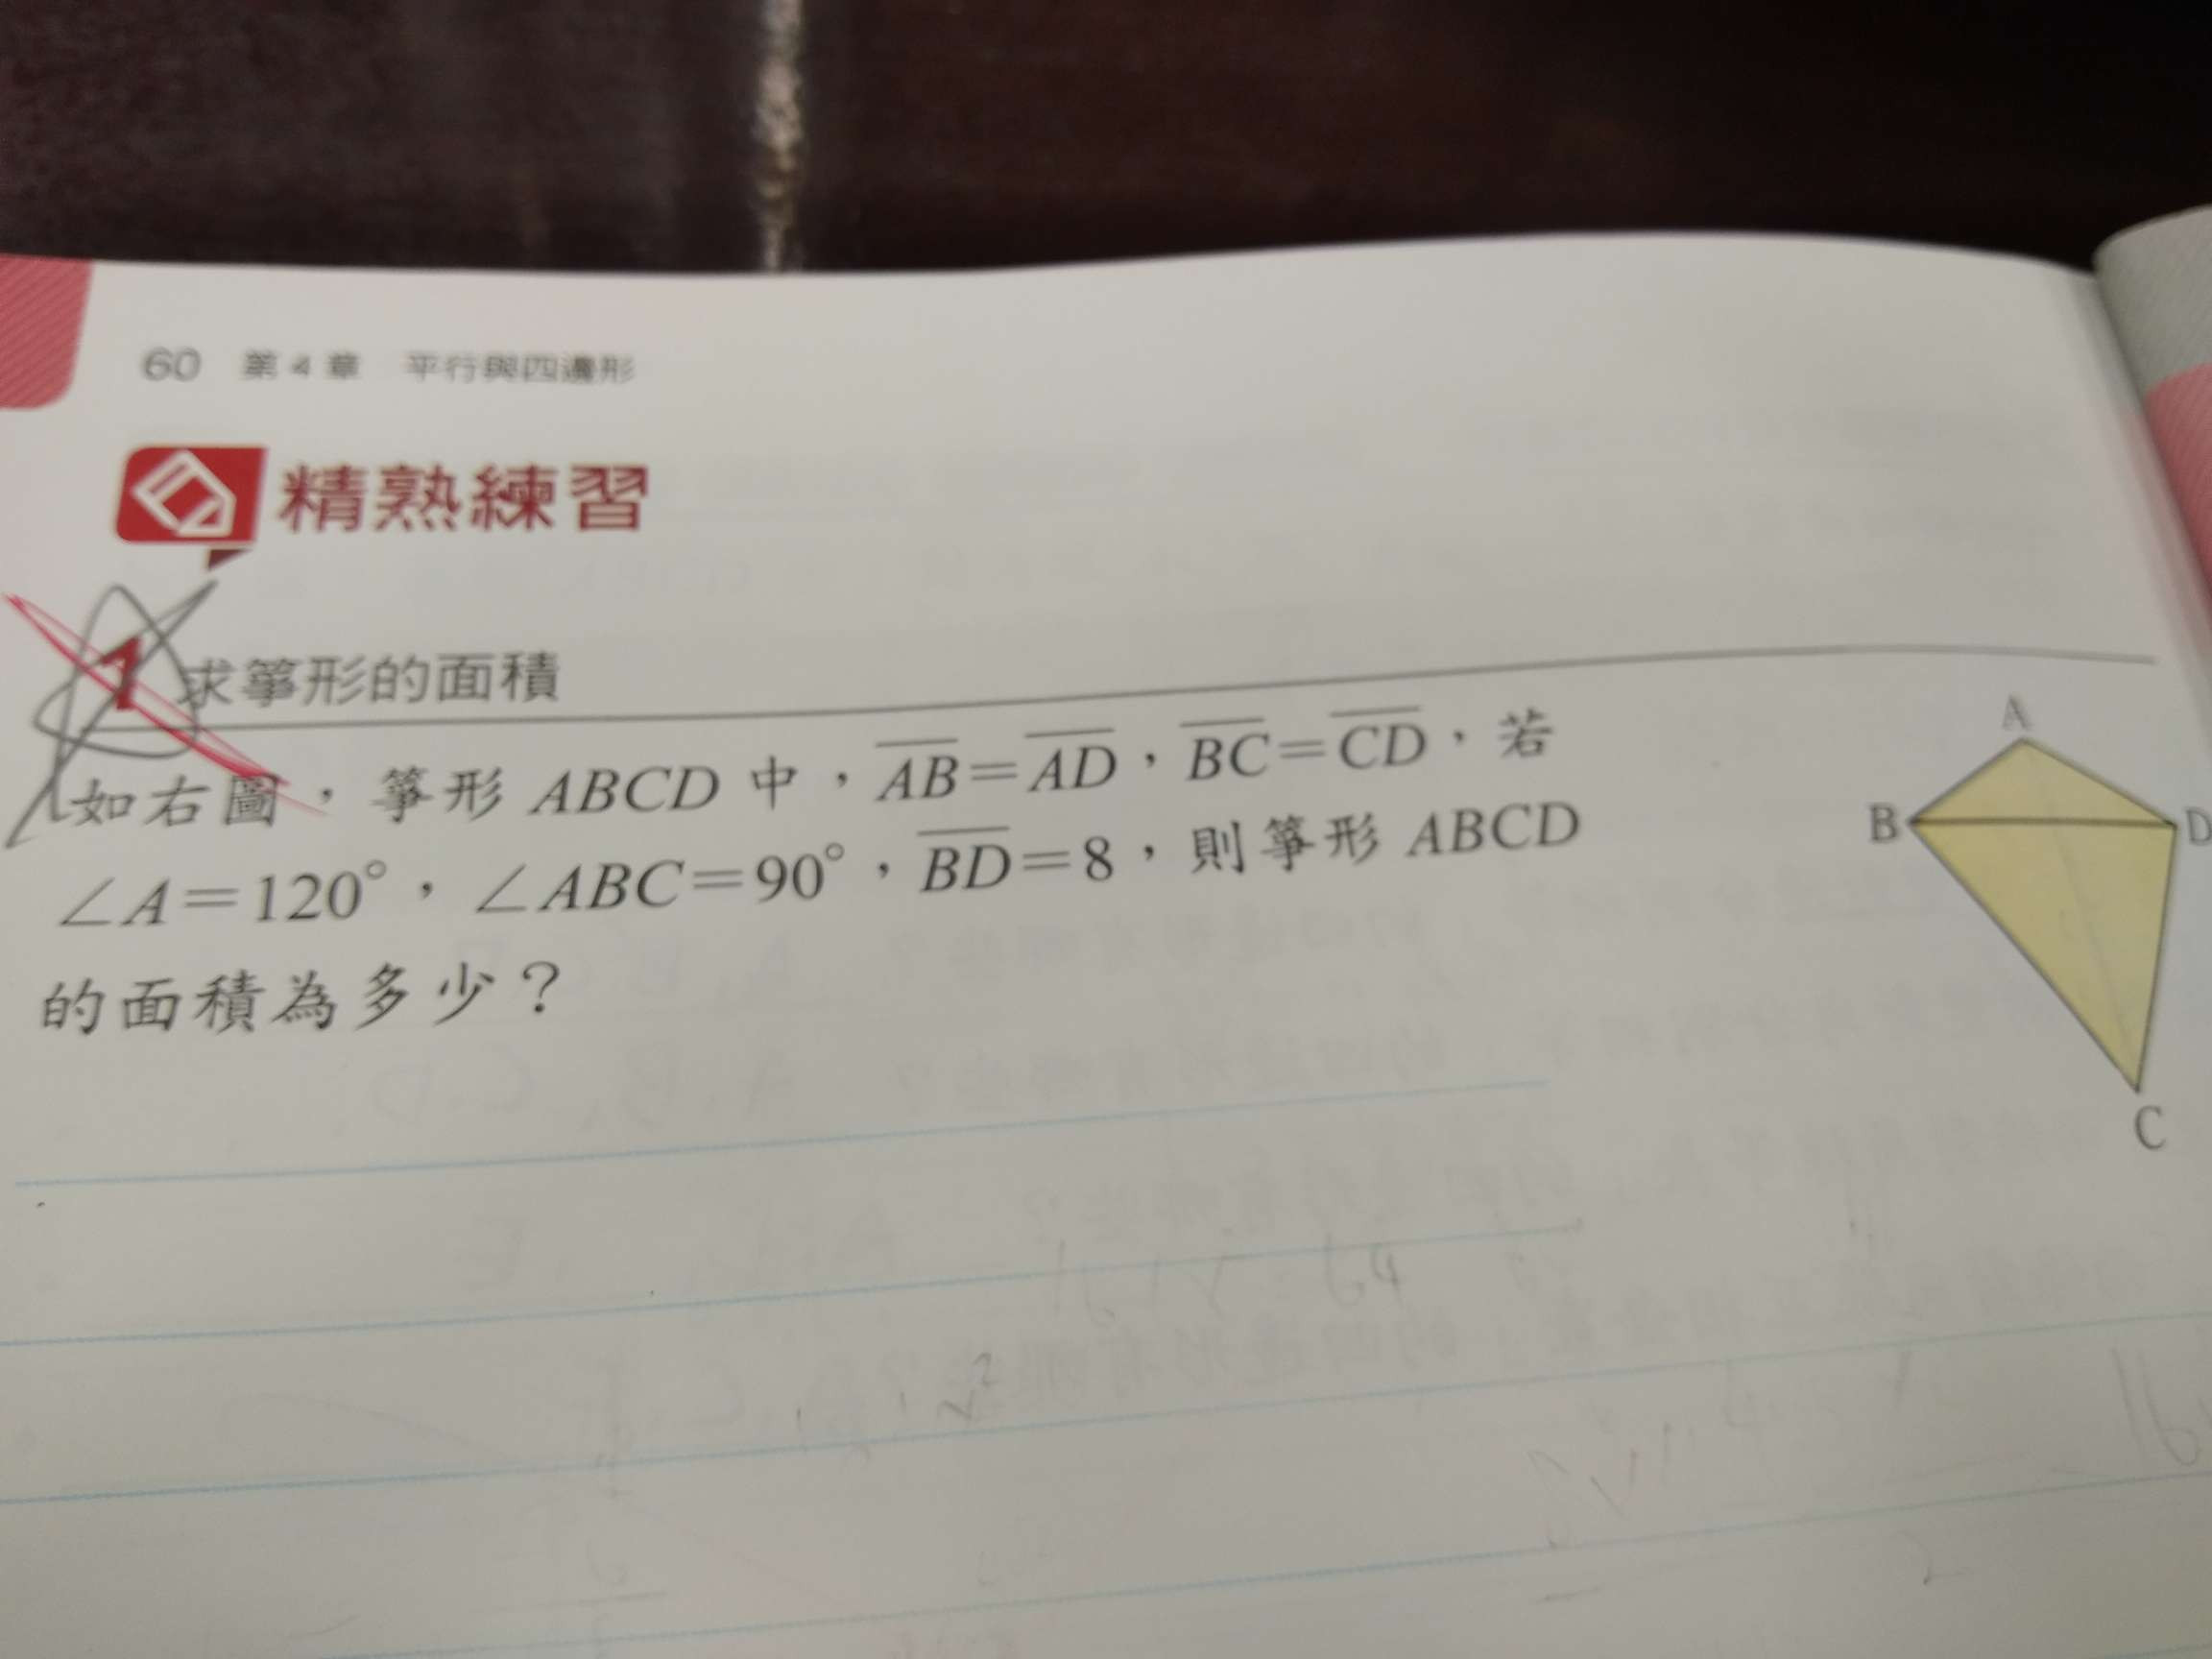 60 第 4 章 平行與四邊形
精熟練習
1 求箏形的面積
如右圖，箏形 ABCD 中，AB=AD，BC=CD，若
∠A=120°，∠ABC=90°，BD=8，則箏形 ABCD
的面積為多少？
A
B
D
C